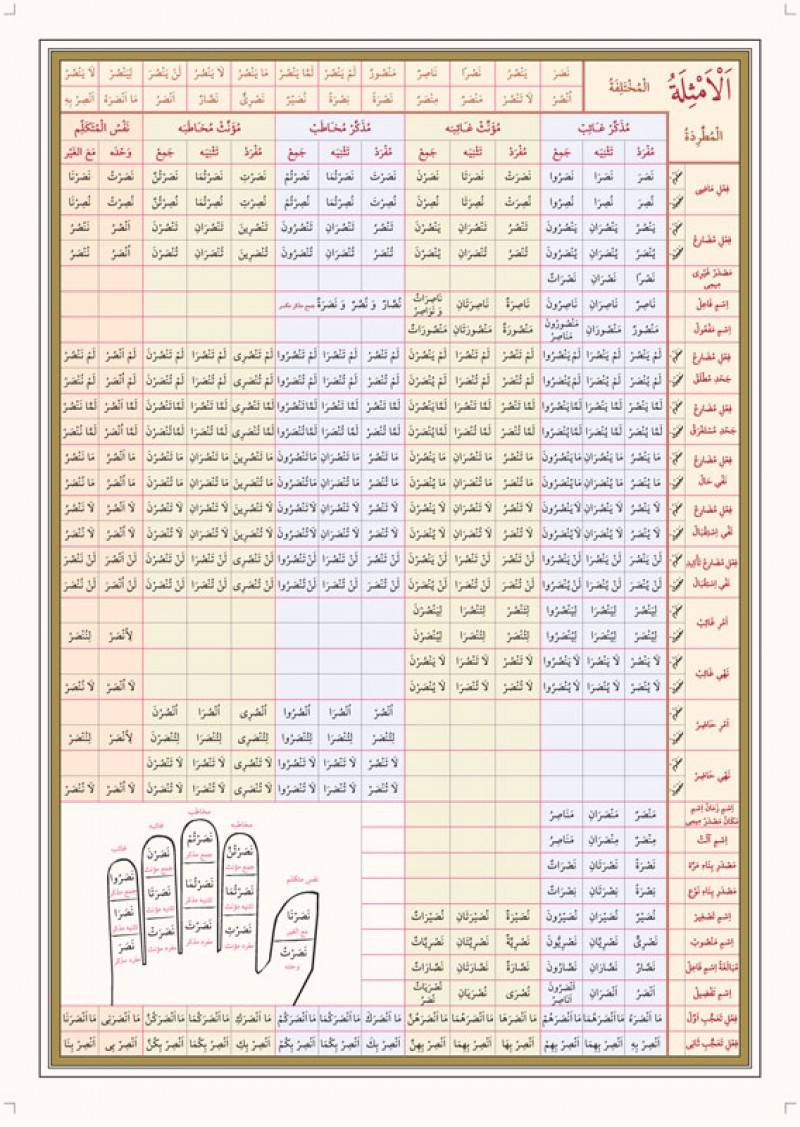 اَلْاَمْثِلَةُ
الْمُخْتَلِفَةُ
نَصَرَ يَنْصُرُ نَصْرًا نَاصِرٌ مَنْصُورٌ لَمْ يَنْصُرْ لَمَّا يَنْصُرْ مَا يَنْصُرُ لَا يَنْصُرُ لَنْ يَنْصُرَ لِيَنْصُرْ لَا يَنْصُرْ
اُنْصُرْ لَا تَنْصُرْ مَنْصَرٌ مِنْصَرٌ نَصْرَةً نِصْرَةً نُصَيْرٌ نَصْرِىٌّ نَصَّارٌ اَنْصَرُ مَا اَنْصَرَهُ اَنْصِرْ بِهِ
الْمُطَّرِدَةُ
مُذَكَّرْ غَائِبْ مُؤَنَّثْ غَائِبَه مُذَكَّرْ مُخَاطَبْ مُؤَنَّثْ مُخَاطَبَه نَفْسُ الْمُتَكَلِّمْ
مُفْرَدْ تَثْنِيَه جَمِعْ مُفْرَدْ تَثْنِيَه جَمِعْ مُفْرَدْ تَثْنِيَه جَمِعْ مُفْرَدْ تَثْنِيَه جَمِعْ وَحْدَه مَعَ الْغَيْرِ
فِعْلِ مَاضِى نَصَرَ نَصَرَا نَصَرُوا نَصَرَتْ نَصَرَتَا نَصَرْنَ نَصَرْتَ نَصَرْتُمَا نَصَرْتُمْ نَصَرْتِ نَصَرْتُمَا نَصَرْتُنَّ نَصَرْتُ نَصَرْنَا
نُصِرَ نُصِرَا نُصِرُوا نُصِرَتْ نُصِرَتَا نُصِرْنَ نُصِرْتَ نُصِرْتُمَا نُصِرْتُمْ نُصِرْتِ نُصِرْتُمَا نُصِرْتُنَّ نُصِرْتُ نُصِرْنَا
فِعْلِ مُضَارِعْ يَنْصُرُ يَنْصُرَانِ يَنْصُرُونَ تَنْصُرُ تَنْصُرَانِ يَنْصُرْنَ تَنْصُرُ تَنْصُرَانِ تَنْصُرُونَ تَنْصُرِينَ تَنْصُرَانِ تَنْصُرْنَ اَنْصُرُ نَنْصُرُ
يُنْصَرُ يُنْصَرَانِ يُنْصَرُونَ تُنْصَرُ تُنْصَرَانِ يُنْصَرْنَ تُنْصَرُ تُنْصَرَانِ تُنْصَرُونَ تُنْصَرِينَ تُنْصَرَانِ تُنْصَرْنَ اُنْصَرُ نُنْصَرُ
مَصْدَرْ غَيْرِى مِيمِى نَصْرًا نَصْرَانِ نَصْرَاتٌ
اِسْمِ فَاعِلْ نَاصِرٌ نَاصِرَانِ نَاصِرُونَ نَاصِرَةٌ نَاصِرَتَانِ نَاصِرَاتٌ وَ نَوَاصِرُ نُصَّارٌ وَ نُصَّرٌ وَ نَصَرَةٌ جمع مذكر مكسر
اِسْمِ مَفْعُولْ مَنْصُورٌ مَنْصُورَانِ مَنْصُورُونَ مَنَاصِرُ مَنْصُورَةٌ مَنْصُورَتَانِ مَنْصُورَاتٌ
فِعْلِ مُضَارِعْ لَمْ يَنْصُرْ لَمْ يَنْصُرَا لَمْ يَنْصُرُوا لَمْ تَنْصُرْ لَمْ تَنْصُرَا لَمْ يَنْصُرْنَ لَمْ تَنْصُرْ لَمْ تَنْصُرَا لَمْ تَنْصُرُوا لَمْ تَنْصُرِى لَمْ تَنْصُرَا لَمْ تَنْصُرْنَ لَمْ اَنْصُرْ لَمْ نَنْصُرْ
جَحْدِ مُطْلَقْ لَمْ يُنْصَرْ لَمْ يُنْصَرَا لَمْ يُنْصَرُوا لَمْ تُنْصَرْ لَمْ تُنْصَرَا لَمْ يُنْصَرْنَ لَمْ تُنْصَرْ لَمْ تُنْصَرَا لَمْ تُنْصَرُوا لَمْ تُنْصَرِى لَمْ تُنْصَرَا لَمْ تُنْصَرْنَ لَمْ اُنْصَرْ لَمْ نُنْصَرْ
فِعْلِ مُضَارِعْ لَمَّا يَنْصُرْ لَمَّا يَنْصُرَا لَمَّا يَنْصُرُوا لَمَّا تَنْصُرْ لَمَّا تَنْصُرَا لَمَّا يَنْصُرْنَ لَمَّا تَنْصُرْ لَمَّا تَنْصُرَا لَمَّا تَنْصُرُوا لَمَّا تَنْصُرِى لَمَّا تَنْصُرَا لَمَّا تَنْصُرْنَ لَمَّا اَنْصُرْ لَمَّا نَنْصُرْ
جَحْدِ مُسْتَغْرَقْ لَمَّا يُنْصَرْ لَمَّا يُنْصَرَا لَمَّا يُنْصَرُوا لَمَّا تُنْصَرْ لَمَّا تُنْصَرَا لَمَّا يُنْصَرْنَ لَمَّا تُنْصَرْ لَمَّا تُنْصَرَا لَمَّا تُنْصَرُوا لَمَّا تُنْصَرِى لَمَّا تُنْصَرَا لَمَّا تُنْصَرْنَ لَمَّا اُنْصَرْ لَمَّا نُنْصَرْ
فِعْلِ مُضَارِعْ مَا يَنْصُرُ مَا يَنْصُرَانِ مَا يَنْصُرُونَ مَا تَنْصُرُ مَا تَنْصُرَانِ مَا يَنْصُرْنَ مَا تَنْصُرُ مَا تَنْصُرَانِ مَا تَنْصُرُونَ مَا تَنْصُرِينَ مَا تَنْصُرَانِ مَا تَنْصُرْنَ مَا اَنْصُرُ مَا نَنْصُرُ
نَفْىِ حَالْ مَا يُنْصَرُ مَا يُنْصَرَانِ مَا يُنْصَرُونَ مَا تُنْصَرُ مَا تُنْصَرَانِ مَا يُنْصَرْنَ مَا تُنْصَرُ مَا تُنْصَرَانِ مَا تُنْصَرُونَ مَا تُنْصَرِينَ مَا تُنْصَرَانِ مَا تُنْصَرْنَ مَا اُنْصَرُ مَا نُنْصَرُ
فِعْلِ مُضَارِعْ لَا يَنْصُرُ لَا يَنْصُرَانِ لَا يَنْصُرُونَ لَا تَنْصُرُ لَا تَنْصُرَانِ لَا يَنْصُرْنَ لَا تَنْصُرُ لَا تَنْصُرَانِ لَا تَنْصُرُونَ لَا تَنْصُرِينَ لَا تَنْصُرَانِ لَا تَنْصُرْنَ لَا اَنْصُرُ لَا نَنْصُرُ
نَفْىِ اِسْتِقْبَالْ لَا يُنْصَرُ لَا يُنْصَرَانِ لَا يُنْصَرُونَ لَا تُنْصَرُ لَا تُنْصَرَانِ لَا يُنْصَرْنَ لَا تُنْصَرُ لَا تُنْصَرَانِ لَا تُنْصَرُونَ لَا تُنْصَرِينَ لَا تُنْصَرَانِ لَا تُنْصَرْنَ لَا اُنْصَرُ لَا نُنْصَرُ
فِعْلِ مُضَارِعْ تَأْكِيدِ لَنْ يَنْصُرَ لَنْ يَنْصُرَا لَنْ يَنْصُرُوا لَنْ تَنْصُرَ لَنْ تَنْصُرَا لَنْ يَنْصُرْنَ لَنْ تَنْصُرَ لَنْ تَنْصُرَا لَنْ تَنْصُرُوا لَنْ تَنْصُرِى لَنْ تَنْصُرَا لَنْ تَنْصُرْنَ لَنْ اَنْصُرَ لَنْ نَنْصُرَ
نَفْىِ اِسْتِقْبَالْ لَنْ يُنْصَرَ لَنْ يُنْصَرَا لَنْ يُنْصَرُوا لَنْ تُنْصَرَ لَنْ تُنْصَرَا لَنْ يُنْصَرْنَ لَنْ تُنْصَرَ لَنْ تُنْصَرَا لَنْ تُنْصَرُوا لَنْ تُنْصَرِى لَنْ تُنْصَرَا لَنْ تُنْصَرْنَ لَنْ اُنْصَرَ لَنْ نُنْصَرَ
اَمْرِ غَائِبْ لِيَنْصُرْ لِيَنْصُرَا لِيَنْصُرُوا لِتَنْصُرْ لِتَنْصُرَا لِيَنْصُرْنَ
لِيُنْصَرْ لِيُنْصَرَا لِيُنْصَرُوا لِتُنْصَرْ لِتُنْصَرَا لِيُنْصَرْنَ لِاُنْصَرْ لِنُنْصَرْ
نَهْىِ غَائِبْ لَا يَنْصُرْ لَا يَنْصُرَا لَا يَنْصُرُوا لَا تَنْصُرْ لَا تَنْصُرَا لَا يَنْصُرْنَ
لَا يُنْصَرْ لَا يُنْصَرَا لَا يُنْصَرُوا لَا تُنْصَرْ لَا تُنْصَرَا لَا يُنْصَرْنَ لَا اُنْصَرْ لَا نُنْصَرْ
اَمْرِ حَاضِرْ اُنْصُرْ اُنْصُرَا اُنْصُرُوا اُنْصُرِى اُنْصُرَا اُنْصُرْنَ
لِتُنْصَرْ لِتُنْصَرَا لِتُنْصَرُوا لِتُنْصَرِى لِتُنْصَرَا لِتُنْصَرْنَ لِاُنْصَرْ لِنُنْصَرْ
نَهْىِ حَاضِرْ لَا تَنْصُرْ لَا تَنْصُرَا لَا تَنْصُرُوا لَا تَنْصُرِى لَا تَنْصُرَا لَا تَنْصُرْنَ
لَا تُنْصَرْ لَا تُنْصَرَا لَا تُنْصَرُوا لَا تُنْصَرِى لَا تُنْصَرَا لَا تُنْصَرْنَ لَا اُنْصَرْ لَا نُنْصَرْ
اِسْمِ زَمَانْ اِسْمِ مَكَانْ مَصْدَرْ مِيمِى مَنْصَرٌ مَنْصَرَانِ مَنَاصِرُ
اِسْمِ آلَتْ مِنْصَرٌ مِنْصَرَانِ مَنَاصِرُ
مَصْدَرْ بِنَاءِ مَرَّه نَصْرَةً نَصْرَتَانِ نَصَرَاتٌ
مَصْدَرْ بِنَاءِ نَوْعْ نِصْرَةً نِصْرَتَانِ نِصَرَاتٌ
اِسْمِ تَصْغِيرْ نُصَيْرٌ نُصَيْرَانِ نُصَيْرُونَ نُصَيْرَةٌ نُصَيْرَتَانِ نُصَيْرَاتٌ
اِسْمِ مَنْصُوبْ نَصْرِىٌّ نَصْرِيَّانِ نَصْرِيُّونَ نَصْرِيَّةٌ نَصْرِيَّتَانِ نَصْرِيَّاتٌ
مُبَالَغَهْ اِسْمِ فَاعِلْ نَصَّارٌ نَصَّارَانِ نَصَّارُونَ نَصَّارَةٌ نَصَّارَتَانِ نَصَّارَاتٌ
اِسْمِ تَفْضِيلْ اَنْصَرُ اَنْصَرَانِ اَنْصَرُونَ اَنَاصِرُ نُصْرَى نُصْرَيَانِ نُصْرَيَاتٌ نُصَرٌ
فِعْلِ تَعَجُّبِ اَوَّلْ مَا اَنْصَرَهُ مَا اَنْصَرَهُمَا مَا اَنْصَرَهُمْ مَا اَنْصَرَهَا مَا اَنْصَرَهُمَا مَا اَنْصَرَهُنَّ مَا اَنْصَرَكَ مَا اَنْصَرَكُمَا مَا اَنْصَرَكُمْ مَا اَنْصَرَكِ مَا اَنْصَرَكُمَا مَا اَنْصَرَكُنَّ مَا اَنْصَرَنِى مَا اَنْصَرَنَا
فِعْلِ تَعَجُّبِ ثَانِى اَنْصِرْ بِهِ اَنْصِرْ بِهِمَا اَنْصِرْ بِهِمْ اَنْصِرْ بِهَا اَنْصِرْ بِهِمَا اَنْصِرْ بِهِنَّ اَنْصِرْ بِكَ اَنْصِرْ بِكُمَا اَنْصِرْ بِكُمْ اَنْصِرْ بِكِ اَنْصِرْ بِكُمَا اَنْصِرْ بِكُنَّ اَنْصِرْ بِى اَنْصِرْ بِنَا
نفس متكلم
نَصَرْنَا
مع الغير
نَصَرْتُ
وحده
مخاطبه
نَصَرْتُنَّ
جمع مؤنث
نَصَرْتُمَا
تثنيه مؤنث
نَصَرْتِ
مفرد مؤنث
مخاطب
نَصَرْتُمْ
جمع مذكر
نَصَرْتُمَا
تثنيه مذكر
نَصَرْتَ
مفرد مذكر
غائبه
نَصَرْنَ
جمع مؤنث
نَصَرَتَا
تثنيه مؤنث
نَصَرَتْ
مفرد مؤنث
غائب
نَصَرُوا
جمع مذكر
نَصَرَا
تثنيه مذكر
نَصَرَ
مفرد مذكر